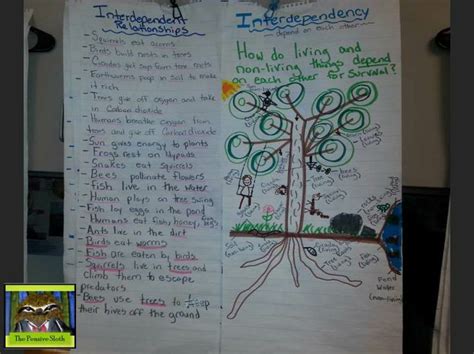 Interdependent
Relationships
- Squirrels eat acorns
- Birds build nests in trees
- Cicadas get sap from tree roots
- Earthworms poop in soil to make
it rich
- Trees give off oxygen and take
in Carbon dioxide
- Humans breathe oxygen from
trees and give off Carbon dioxide
- Sun gives energy to plants
- Frogs rest on lilypads
- Snakes eat squirrels
- Bees pollinate flowers
- Fish live in the water
- Human plays on tree swing
- Fish lay eggs in the pond
- Humans eat fish, honey,
- Ants live in the dirt
- Birds eat worms
- Fish are eaten by birds
- Squirrels live in trees and
climb them to escape
predators
- Bees use trees to keep
their hives off the ground
Interdependency
depend on each other
How do living and
non-living things depend
on each other for survival?
Soil
Pond
Water
(non-living)
The Pensive Sloth